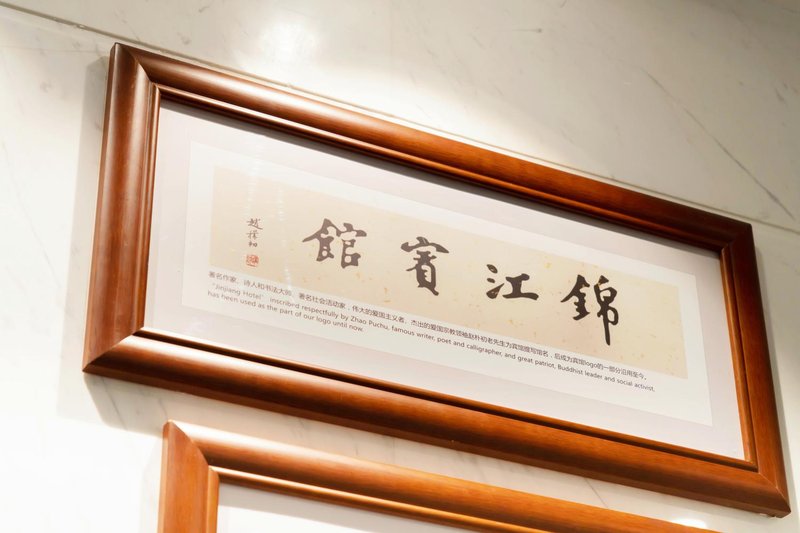 錦江賓館
趙樸初
著名作家、诗人和书法大师、著名社会活动家，伟大的爱国主义者、杰出的爱国宗教领袖赵朴初老先生为宾馆撰写馆名，后成为宾馆logo的一部分沿用至今。
“Jinjiang Hotel” inscribed respectfully by Zhao Puchu, famous writer, poet and calligrapher, and great patriot, Buddhist leader and social activist,
has been used as the part of our logo until now.